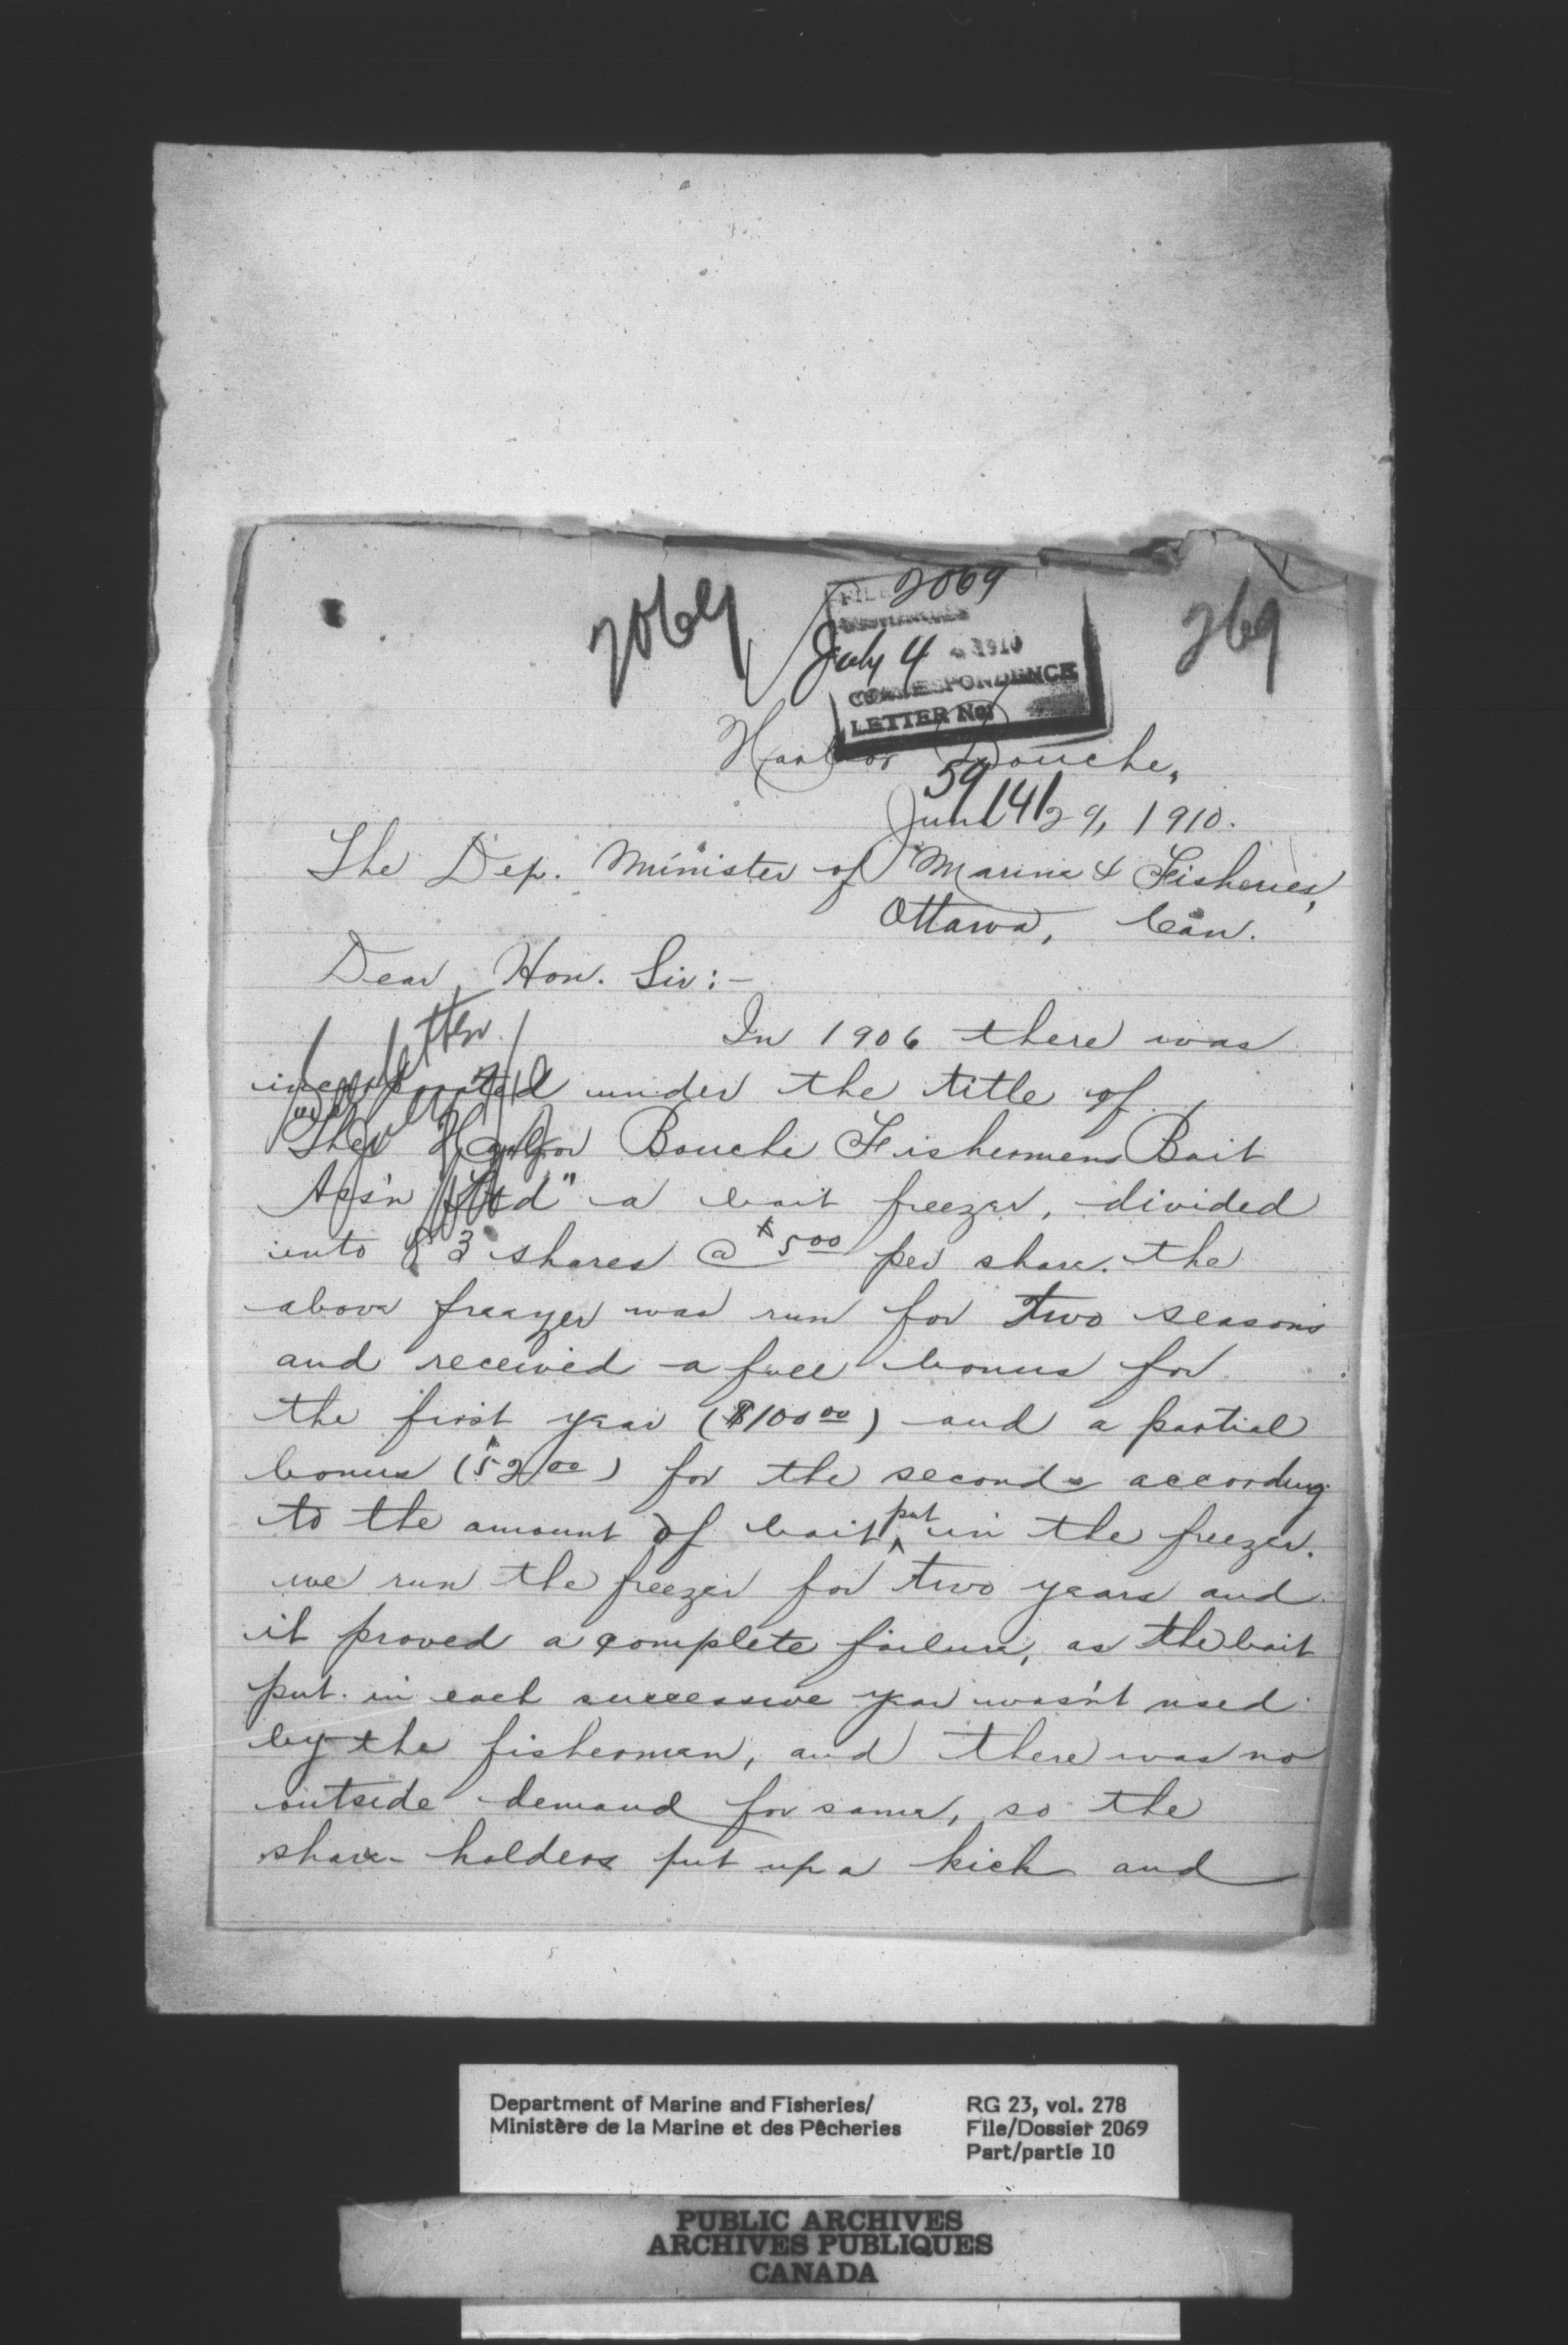 2069
2069
269
FILE
July 4 1910
CORRESPONDENCE
LETTER No.
Harbor Bouche,
59141
June 29, 1910.
The Dep. Minister of Marine & Fisheries,
Ottawa, Can.
Dear Hon. Sir:-
In 1906 there was
incorporated under the title of
"The Harbor Bouche Fishermens Bait
Ass'n Ltd" a bait freezer, divided
into 83 shares @ $5.00 per share. the
above freazer was run for Two seasons
and received a full bonus for
the first year ($100.00) and a partial
bonus ($52.00) for the second according
to the amount of bait put in the freezer.
we run the freezer for two years and
it proved a complete failure, as the bait
put in each successive year wasn't used
by the fisherman, and there was no
outside demand for same, so the
share-holders put up a kick and
Department of Marine and Fisheries/
Ministère de la Marine et des Pêcheries
RG 23, vol. 278
File/Dossier 2069
Part/partie 10
PUBLIC ARCHIVES
ARCHIVES PUBLIQUES
CANADA